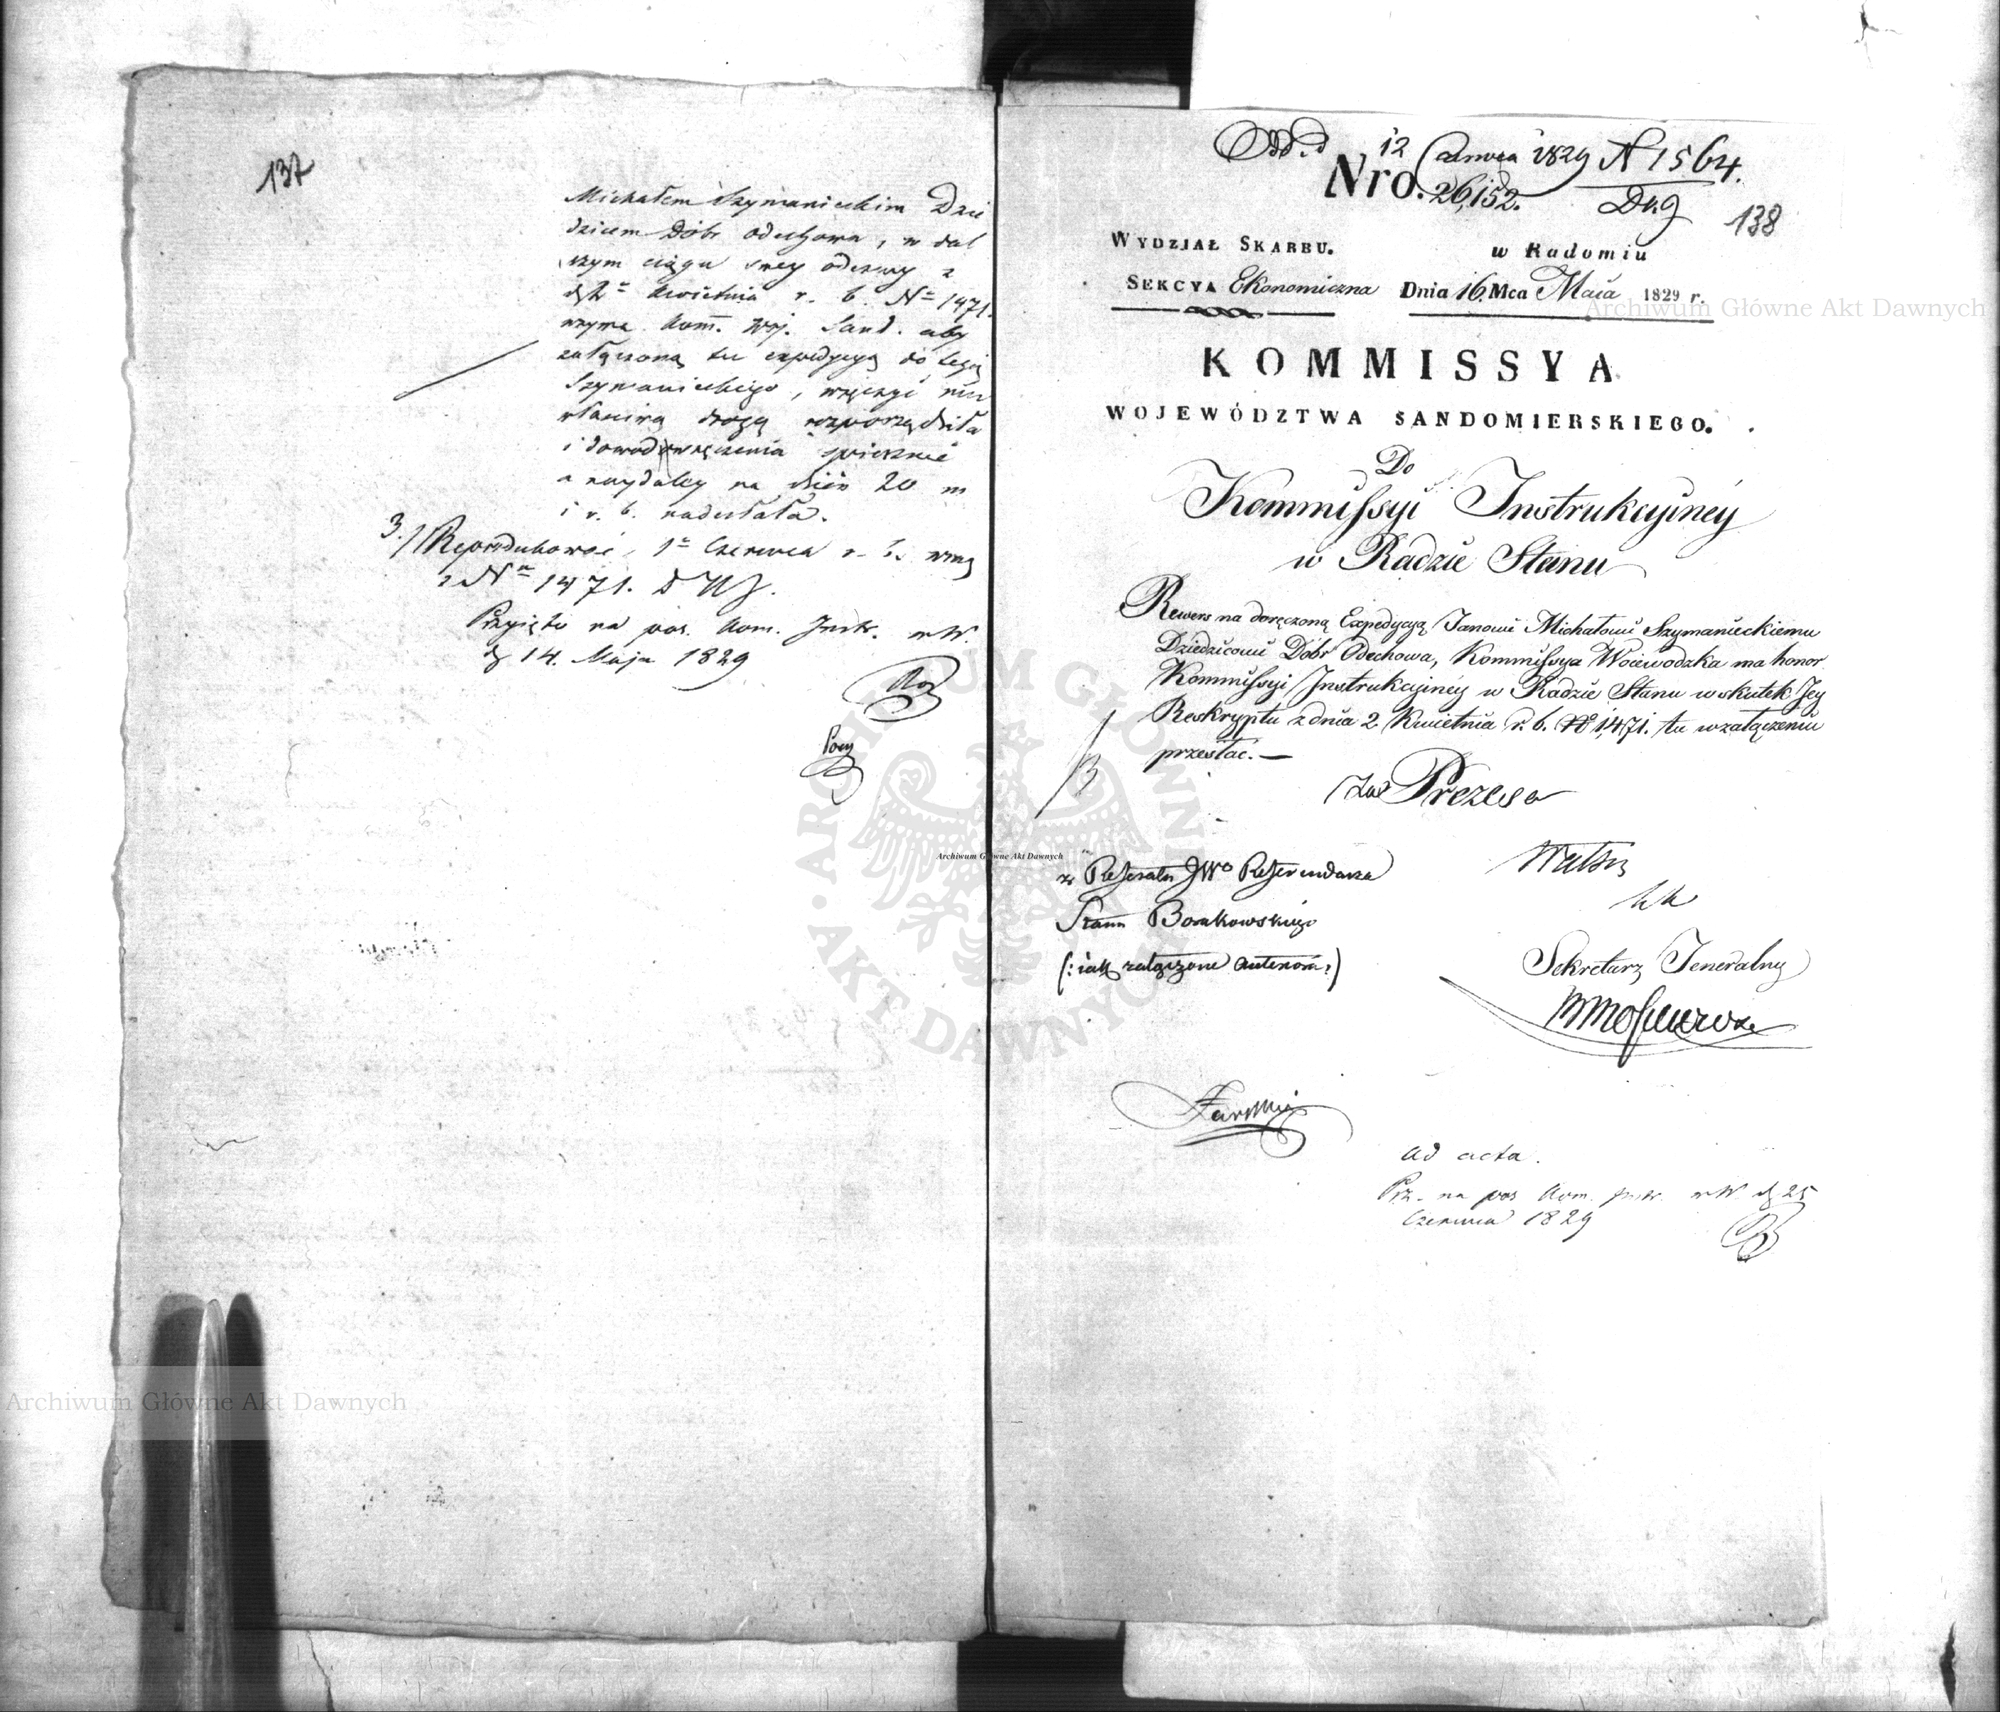 137
Michałem Szymanieckim Dzie
dzicem Dóbr Odechowa, w dal
szym ciągu swey odezwy z
d 2 Kwietnia r. b. No 1471.
wzywa Kom. Woj. Sand. aby
załączoną tu expedycyą do tegoż
Szymanieckiego, wręczyć mu
właściwą drogą rozporządziła
i dowod wręczenia spiesznie
a naydaley na dzień 20 m
i r. b. nadesłała.
3./ Reprodukować 1o Czerwca r. b. wraz
z No 1471.
Przyięto na pos. Kom. Instr.
d 14. Maja 1829
Odd. d 12 Czerwca 1829 N 1564.
Nro. 26,152.
138
WYDZIAŁ SKARBU.
w Radomiu
SEKCYA Ekonomiczna Dnia 16. Mca Maia 1829 r.
KOMMISSYA
WOJEWÓDZTWA SANDOMIERSKIEGO.
Do
Kommissyi Instrukcyiney
w Radzie Stanu
Rewers na doręczoną Expedycyą Janowi Michałowi Szymanieckiemu
Dziedzicowi Dóbr Odechowa, Kommissya Woiewodzka ma honor
Kommissyi Instrukcyiney w Radzie Stanu w skutek Jey
Reskryptu z dnia 2 Kwietnia r. b. No 1,471. tu w załączeniu
przesłać. —
Zas Prezesa
z Referatu JWo Referendarza
Stanu Borakowskiego
(: iak załączone :)
Sekretarz Jeneralny
ad acta.
Prz. na pos Kom. Instr. d 25
Czerwca 1829
Archiwum Główne Akt Dawnych
Archiwum Główne Akt Dawnych
Archiwum Główne Akt Dawnych
ARCHIWUM GŁÓWNE AKT DAWNYCH